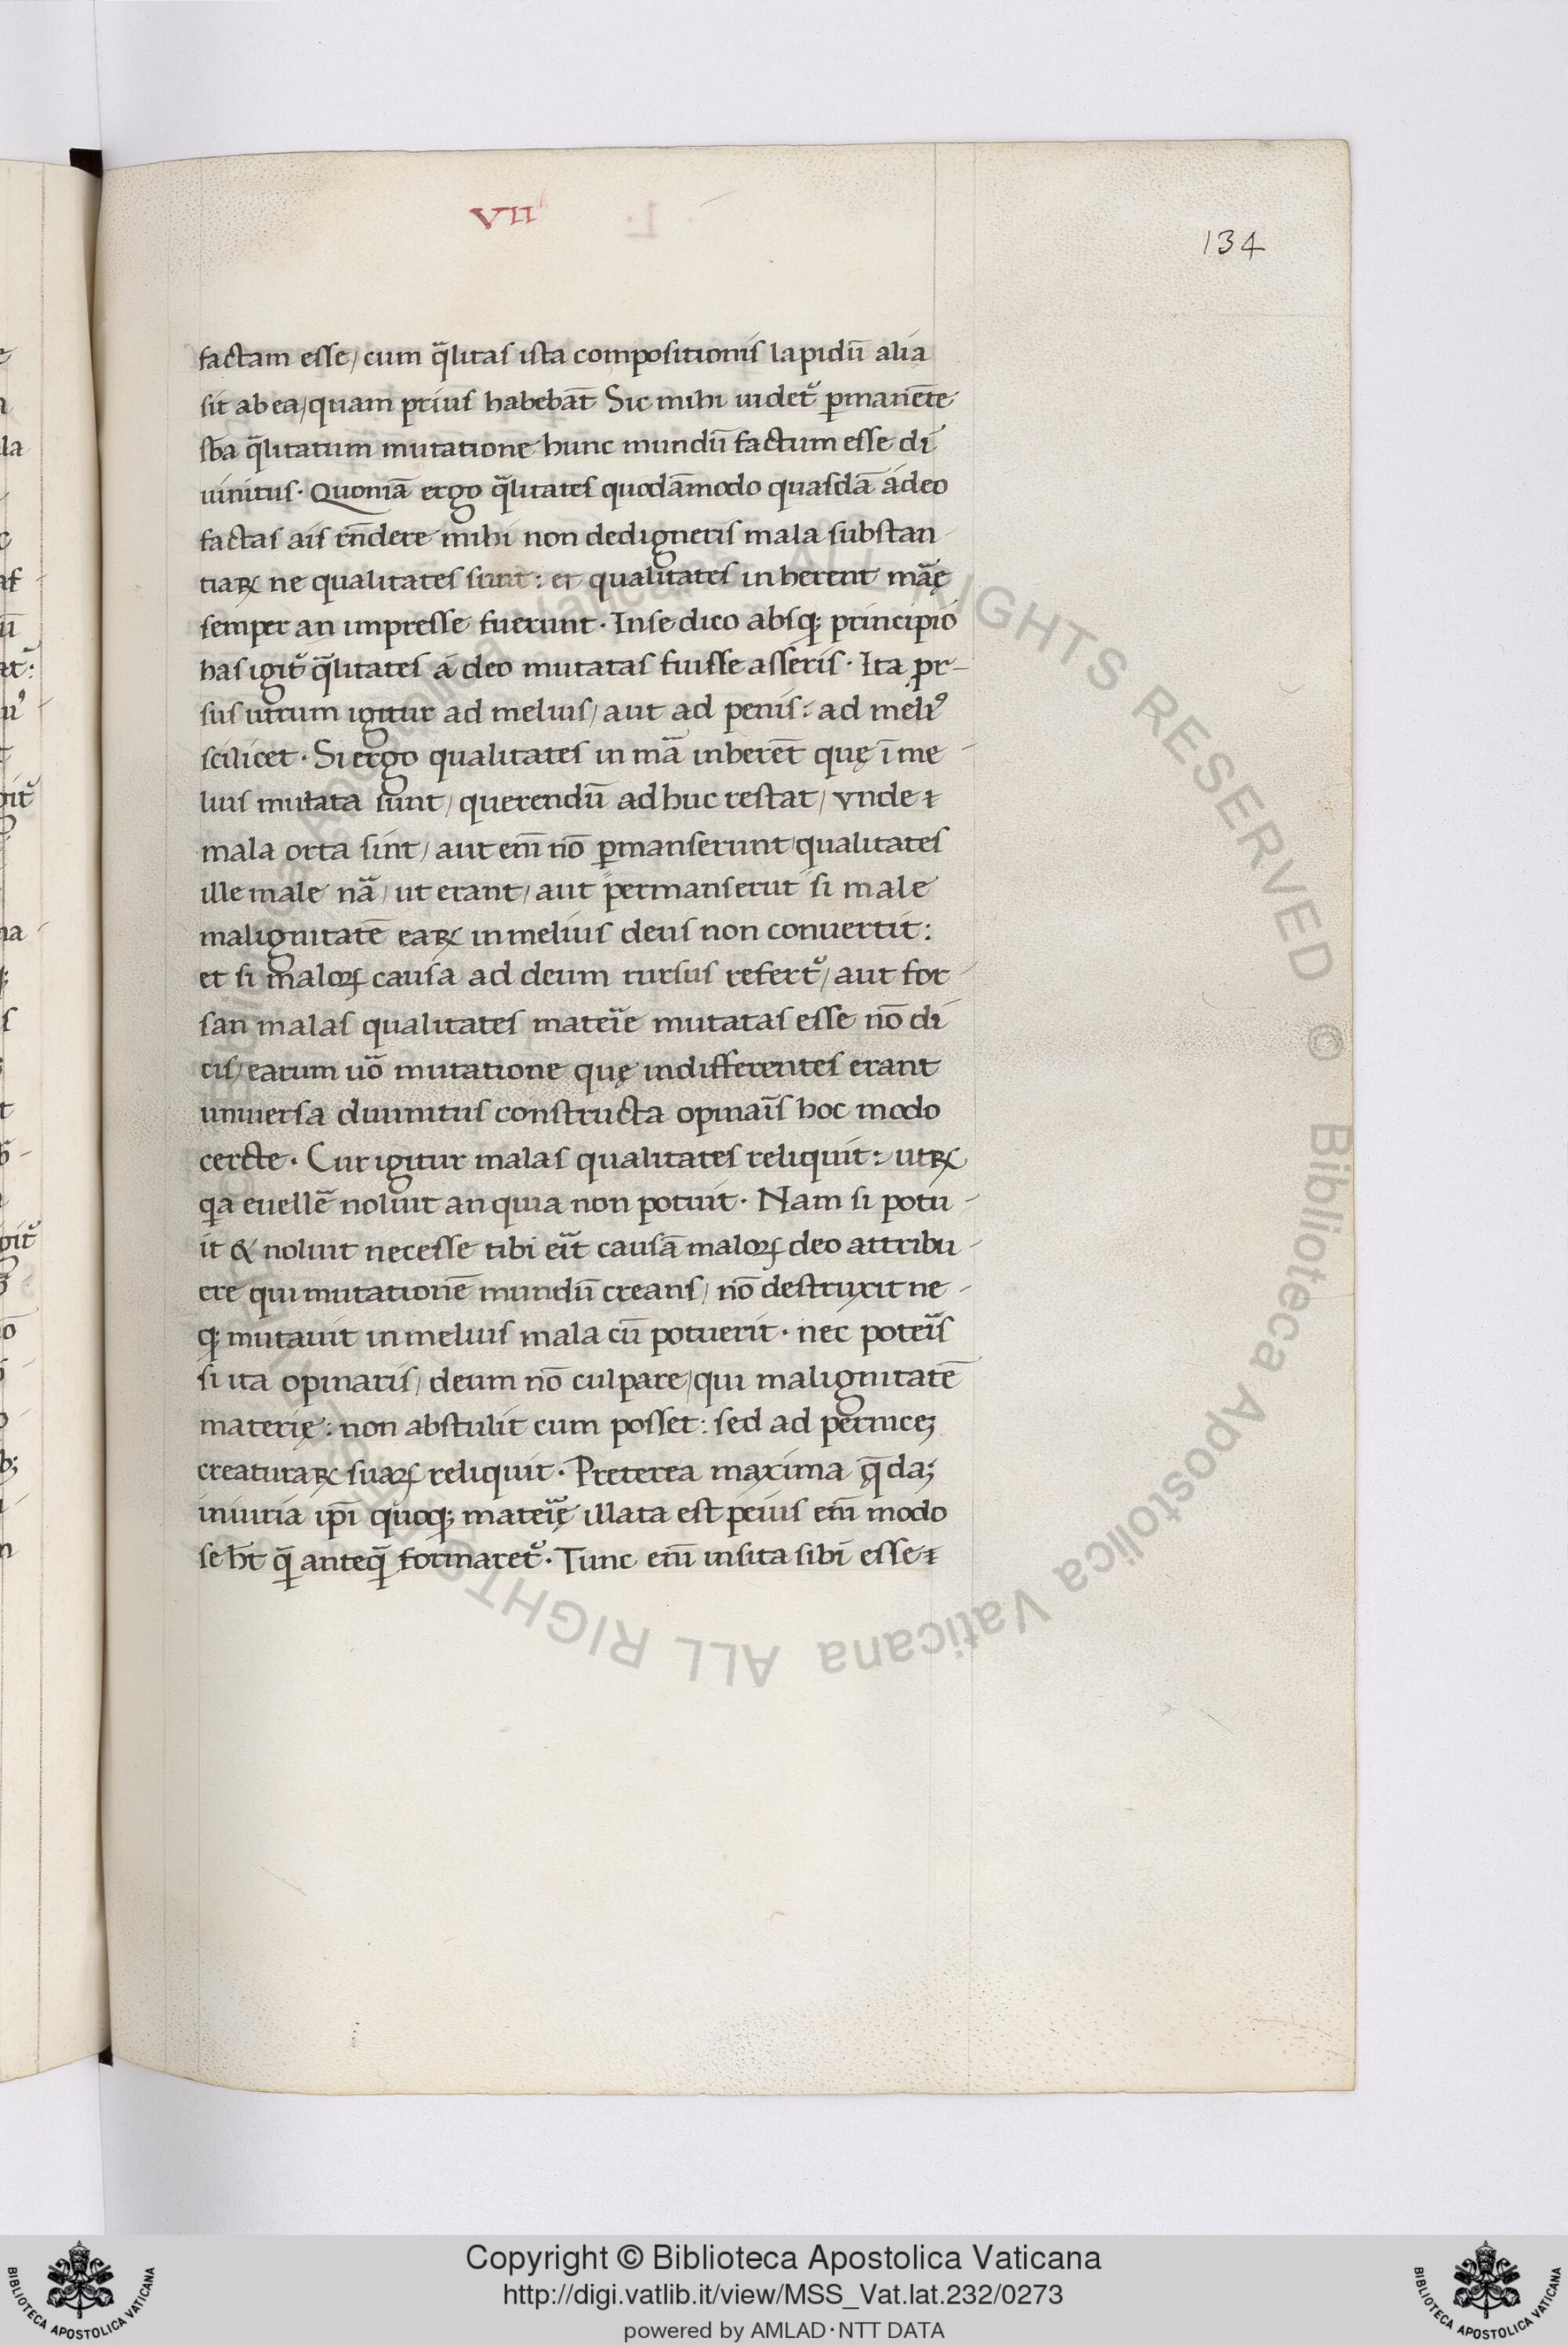 VII
134
factam esse/ cum q̄litas ista compositionis lapidū alia
sit ab ea/quam prius habebāt Sic mihi uidet᷑ ꝑmanēte
sb̄a q̄litatum mutatione hunc mundū factum esse di
uinitus· Quoniā ergo q̄litates quodāmodo quasdā ádeo
factas ais rn̄dere mihi non dedigneris mala substan
tiaꝝ ne qualitates sunt: et qualitates inherent mā̄ę
semper an impresse fuerunt· Inse dico absq; principió
has igit᷑ q̄litates á deo mutatas fuisse asseris· Ita pr-
sus utrum igitur ad melius/ aut ad penis: ad meliꝰ
scilicet· Si ergo qualitates in mā inherēt quę ī me
lius mutata sunt/ querendū adhuc restat/ vnde ⁊
mala orta sint/ aut em̄ nō ꝑmanserunt/qualitates
ille male nā/ ut erant/ aut permanserut si male
malignitatē eaꝝ in melius deus non conuertit:
et si maloꝝ causa ad deum rursus refert᷑/ aut for
san malas qualitates mateīe mutatas esse nō di
cis/ earum uō mutatione quę indifferentes erant
uniuersa diuinitus constructa opinaīs hoc modo
cercte· Cur igitur malas qualitates reliquit: utꝝ
qa euellē noluit an quia non potuit· Nam si potu
it & noluit necesse tibi eīt causā maloꝝ deo attribu
ere qui mutationē mundū creans/ nō destruxit ne
q; mutauit in melius mala cū potuerit· nec poteīs
si ita opinaris/ deum nō culpare/qui malignitatē
materię: non abstulit cum posset: sed ad perniceȝ
creaturaꝝ suaꝝ reliquit· Preterea maxima q̄daȝ
iniuria ip̄i quoq; mateīę illata est peius em̄ modo
se h̄t q̄ anteq̄ formaret᷑· Tunc em̄ insita sibi esse ⁊
© Biblioteca Apostolica Vaticana ALL RIGHTS RESERVED
Copyright © Biblioteca Apostolica Vaticana
http://digi.vatlib.it/view/MSS_Vat.lat.232/0273
powered by AMLAD·NTT DATA
BIBLIOTECA APOSTOLICA VATICANA
BIBLIOTECA APOSTOLICA VATICANA